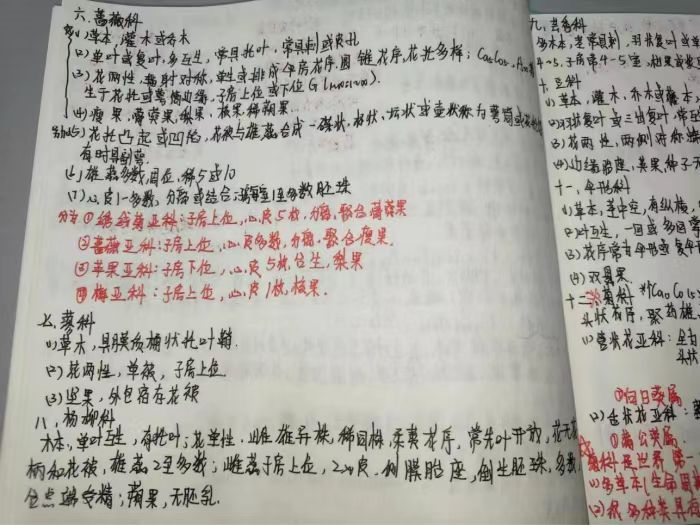 六.蔷薇科
(1)草本,灌木或乔木
(2)单叶或复叶,多互生,常具托叶,常具刺或皮孔
(3)花两性,辐射对称,单生或排成伞房花序,圆锥花序,花托多样;
生于花托或萼筒边缘,子房上位或下位
(4)瘦果,蓇葖果,梨果,核果稀蒴果
(5)花托凸起或凹陷,花被与雄蕊合成一碟状,杯状,坛状或壶状称为萼筒或
有时具副萼.
(6)雄蕊多数,周位,稀5或10
(7)心皮1-多数,分离或结合;每室1至多数胚珠
分类①绣线菊亚科:子房上位,心皮5枚,分离,聚合蓇葖果
②蔷薇亚科:子房上位,心皮多数,分离,聚合瘦果.
③苹果亚科:子房下位,心皮5枚,合生,梨果
④梅亚科:子房上位,心皮1枚,核果.
七.蓼科
(1)草木,具膜质桶状托叶鞘.
(2)花两性,单被,子房上位
(3)坚果,外包宿存花被
八.杨柳科
木本,单叶互生,有托叶;花单性,雌雄异株,稀同株,柔荑花序,常先叶开放,花无花
柄和花被,雄蕊2至多数;雌蕊子房上位,2心皮.侧膜胎座,倒生胚珠,多数,
合点端受精;蒴果,无胚乳.
九.芸香科
多木本,茎常具刺,羽状复叶或单
4~5,子房常4~5室,
十.豆科
(1)草本,灌木,乔木或藤本
(2)羽状复叶或三出复叶,常
(3)花两性,两侧对称
(4)边缘胎座,荚果,种子无
十一.伞形科
(1)草本,茎中空,有纵棱,
(2)叶互生,一回或多回
(3)花序常有伞形或复伞
(4)双悬果
十二.菊科
头状花序,聚药雄
(1)管状花亚科:全为
头状
①向日葵属
(2)舌状花亚科:
①蒲公英属
菊科是世界第一
(1)多草本(生命周期
(2)很多种类具有